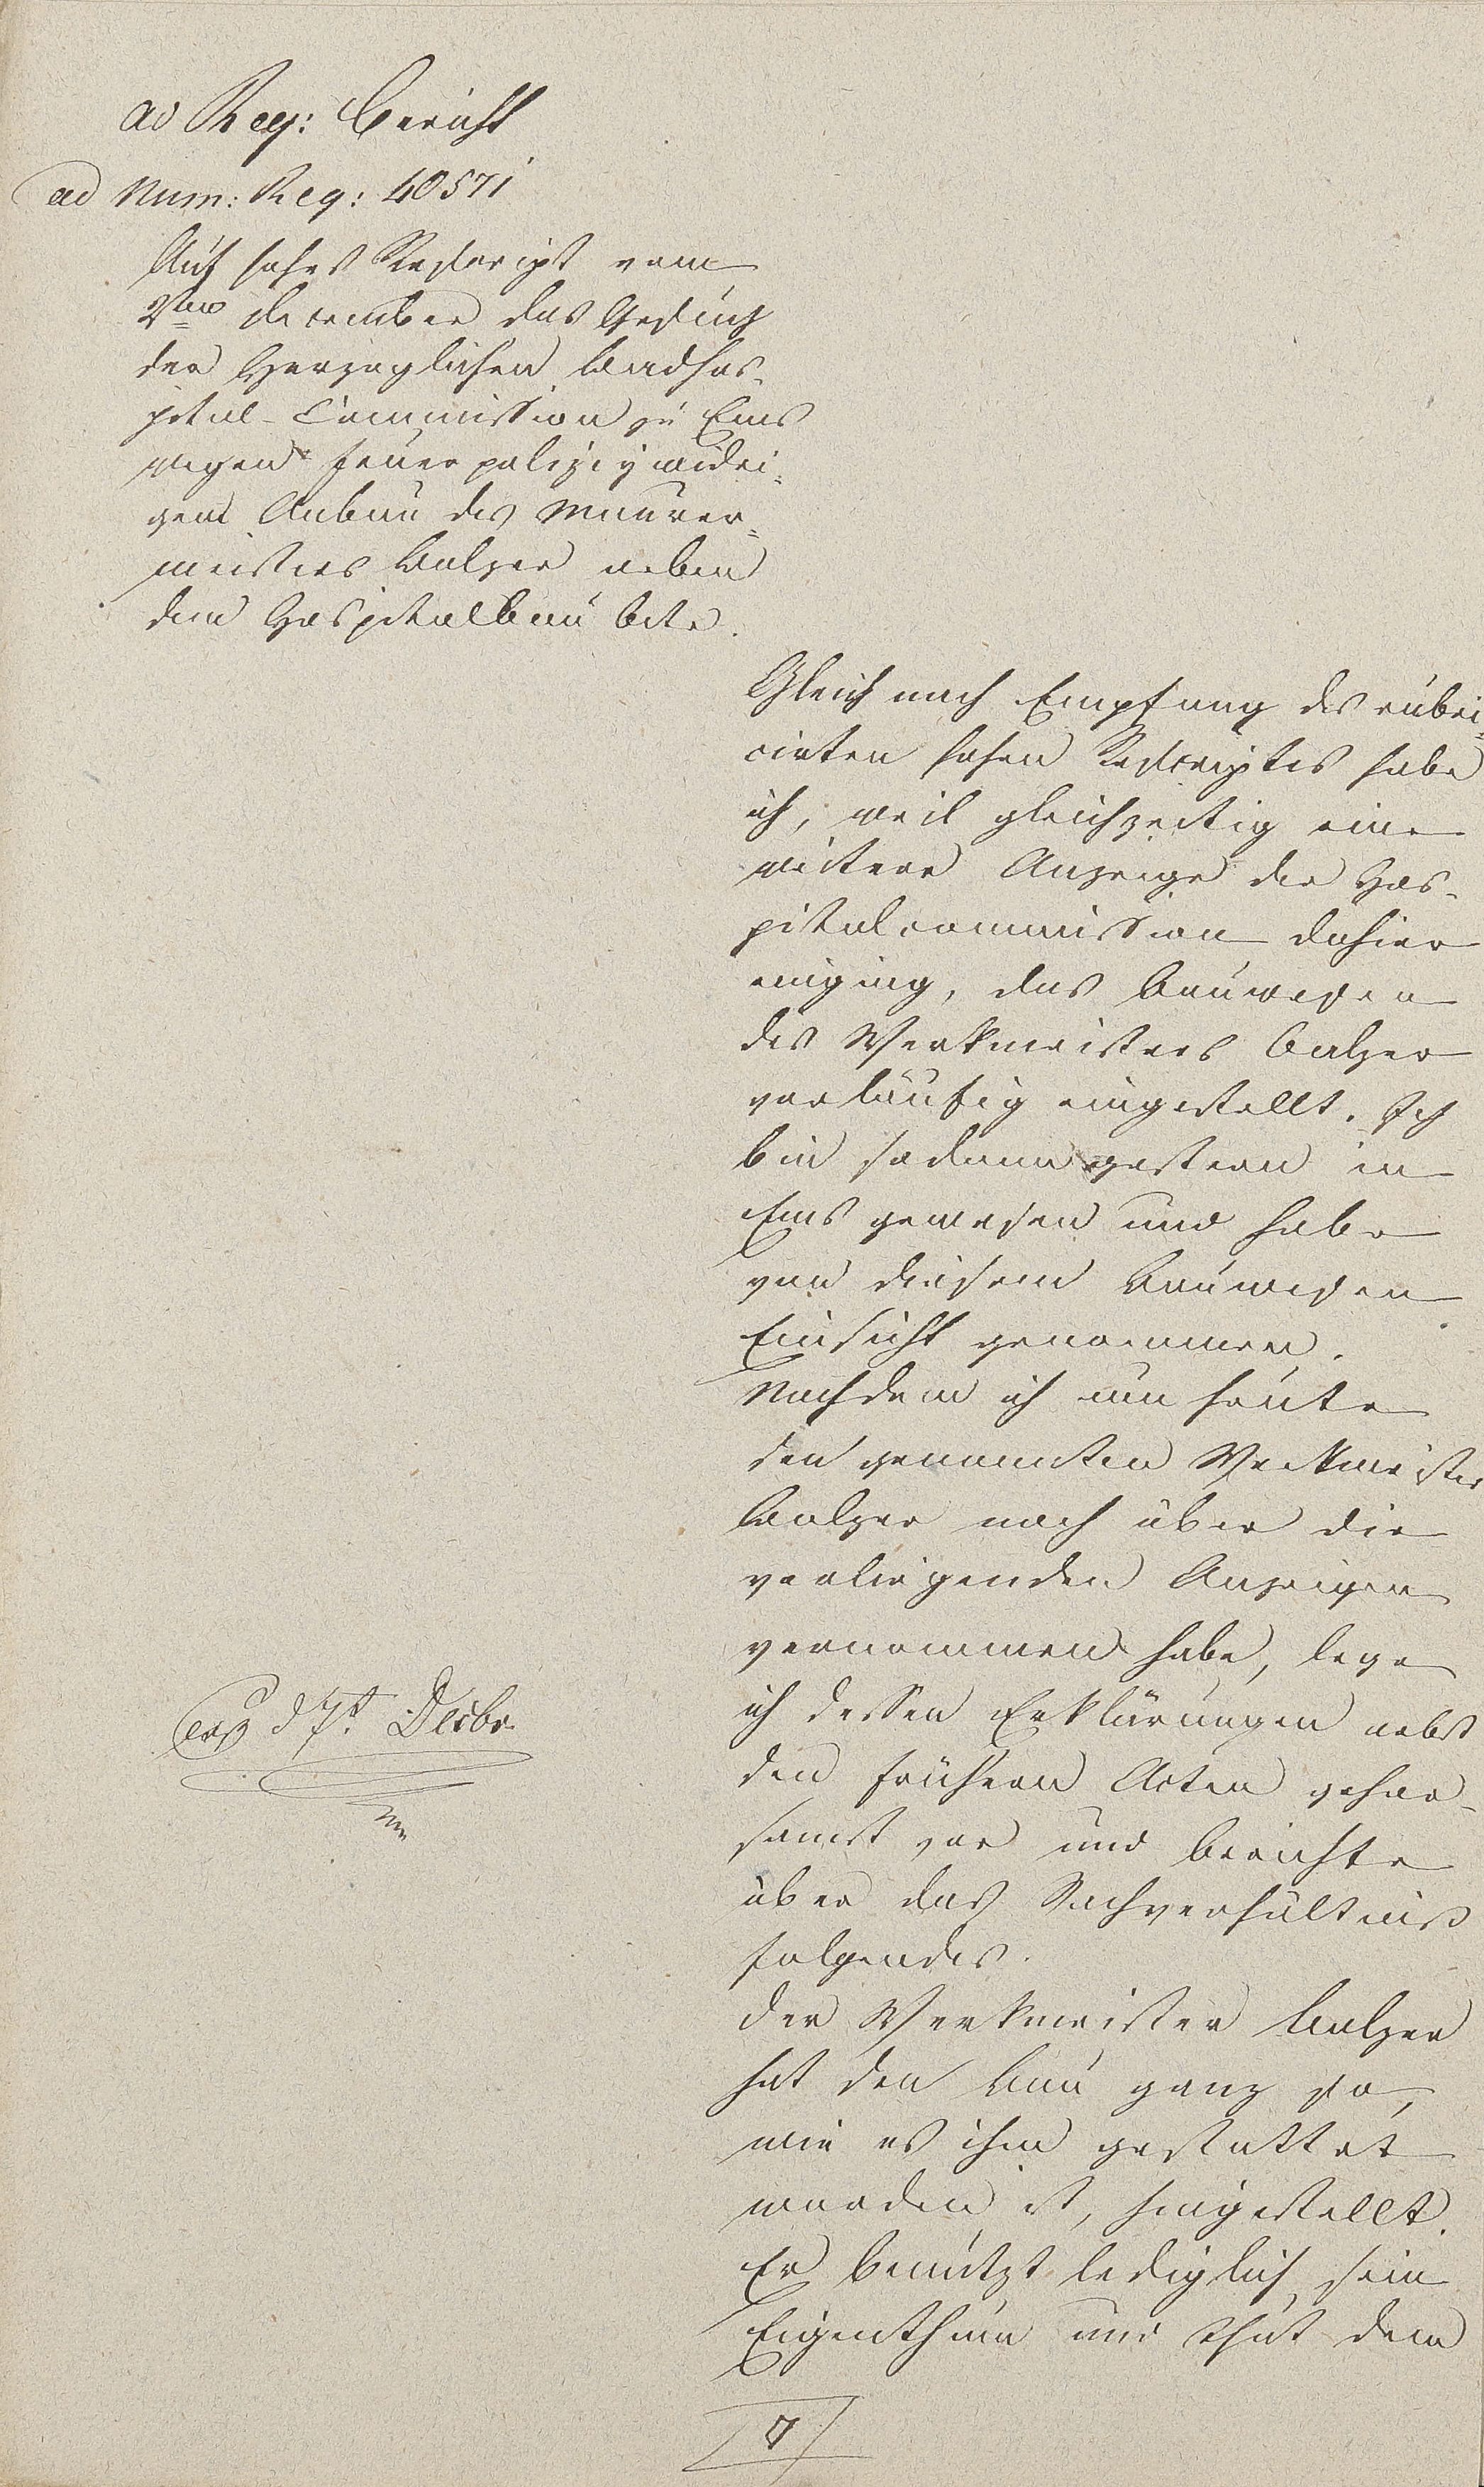 ad Reg: Bericht
ad Num: Reg: 40571
Auf hohes Rescript vom
2ten December das Gesuch
der Herzoglichen Badhos-
pital-Commission zu Ems
wegen feuerpolizeywidri-
gem Anbau des Maurer-
meisters Balzer neben
dem Hospitalbau betr.
Gleich nach Empfang des rubri-
cirten hohen Rescriptes habe
ich, weil gleichzeitig eine
weitere Anzeige der Hos-
pitalcommission dahier
einging, das Bauwesen
des Werkmeisters Balzer
vorläufig eingestellt. Ich
bin sodann gestern in
Ems gewesen und habe
von diesem Bauwesen
Einsicht genommen.
Nachdem ich nun heute
den genannten Werkmeister
Balzer noch über die
vorliegenden Anzeigen
vernommen habe, lege
ich dessen Erklärungen nebst
den frühern Acten gehor-
samst vor und berichte
über das Sachverhältniß
folgendes.
Der Werkmeister Balzer
hat den Bau ganz so,
wie es ihm gestattet
worden ist, hingestellt.
Er benutzt lediglich sein
Eigenthum und thut dem
d 7t Decbr.
7